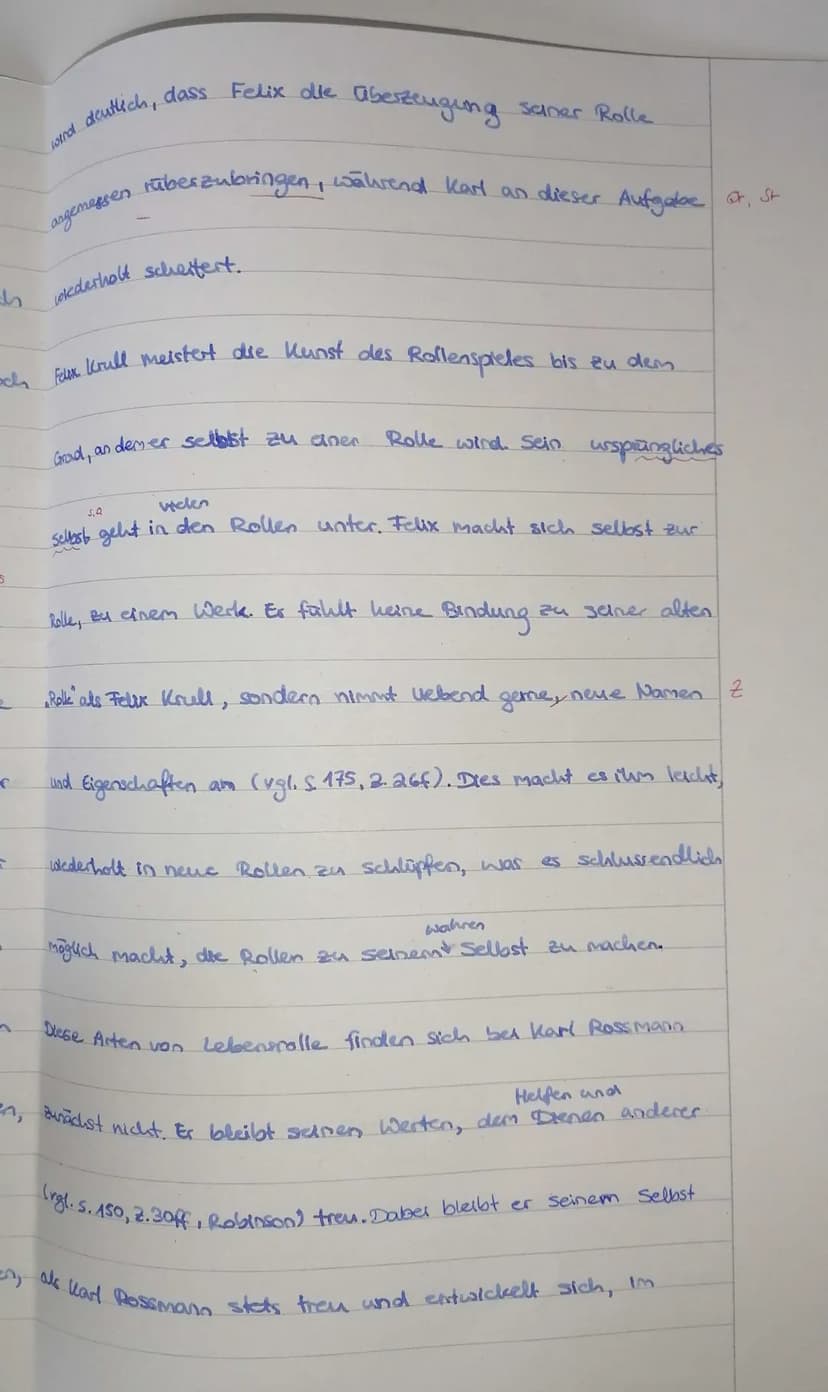 wird deutlich, dass Felix die Überzeugung seiner Rolle
angemessen rüberzubringen, während Karl an dieser Aufgabe Gr, St
wiederholt scheitert.
Felix Krull meistert die Kunst des Rollenspieles bis zu dem
Grad, an dem er selbst zu einer Rolle wird. Sein ursprüngliches
vielen
selbst geht in den Rollen unter. Felix macht sich selbst zur
Rolle, zu einem Werk. Er fühlt keine Bindung zu seiner alten
„Rolle" als Felix Krull, sondern nimmt liebend gerne, neue Namen Z
und Eigenschaften an (vgl. S. 175, Z. 26f). Dies macht es ihm leicht,
wiederholt in neue Rollen zu schlüpfen, was es schlussendlich
wahren
möglich macht, die Rollen zu seinem Selbst zu machen.
Diese Arten von Lebensrolle finden sich bei Karl Rossmann
Helfen und
zunächst nicht. Er bleibt seinen Werten, dem Dienen anderer
(vgl. S. 150, Z. 30ff, Robinson) treu. Dabei bleibt er seinem Selbst
als Karl Rossmann stets treu und entwickelt sich, im